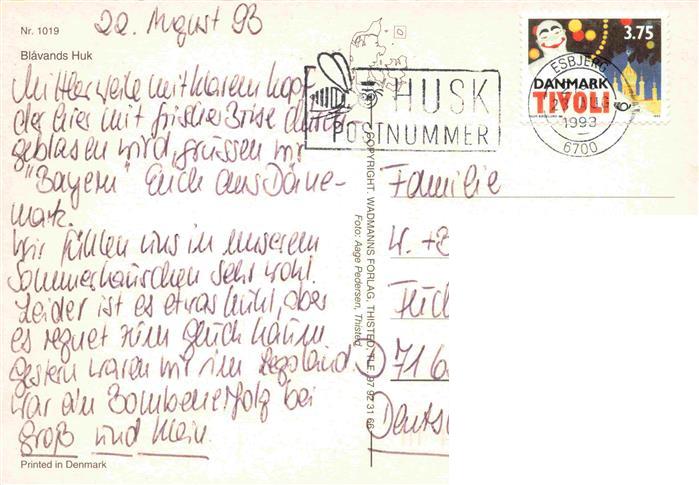 Nr. 1019
22. August 93
Blåvands Huk
Mittlerweile mit klarem Kopf
der hier mit frischer Brise durch
geblasen wird, grüssen wir
"Bayern" Euch aus Däne-
mark.
Wir fühlen uns in unserem
Sommerhäuschen sehr wohl.
Leider ist es etwas kühl, aber
es regnet zum Glück kaum.
Gestern waren wir im Legoland
war ein Bombenerfolg bei
groß und klein.
Printed in Denmark
COPYRIGHT. WADMANNS FORLAG, THISTED, TLF. 97 92 31 66
Foto: Aage Pedersen, Thisted
HUSK
POSTNUMMER
ESBJERG
1993
6700
3.75
DANMARK
TIVOLI
Familie
W. +
71